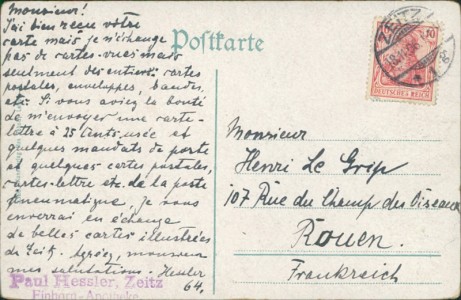 Monsieur!
J'ai bien reçu votre
carte mais je n'échange
pas de cartes-vues mais
seulment des entiers: cartes
postales, enveluppes, bandes,
etc. Si vous aviez la bonté
de m'envoyer une carte-
lettre à 25 cents. usée et
quelques mandats de poste
et quelques cartes postales,
cartes-lettre etc. de la poste
pneumatique, je vous
enverrai en échange
de belles cartes illustrées
de Zeitz. Agréez, monsieur
mes salutations. Hessler
64.
Paul Hessler, Zeitz
Einhorn-Apotheke
Postkarte
ZEITZ
10
DEUTSCHES REICH
Monsieur
Henri Le Grip
107 Rue du Champ des Oiseaux
Rouen.
Frankreich